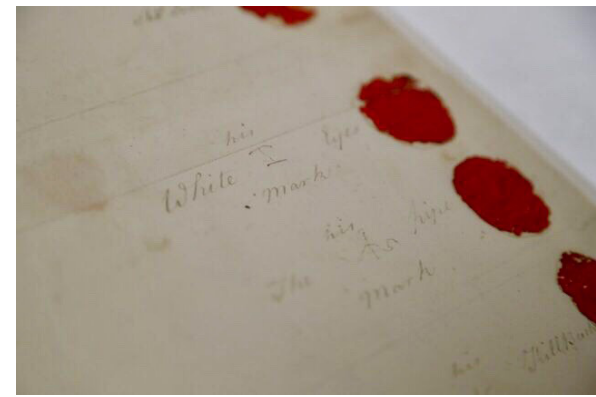 his
White Eyes
mark
his
The Pipe
mark
his
Killbuck